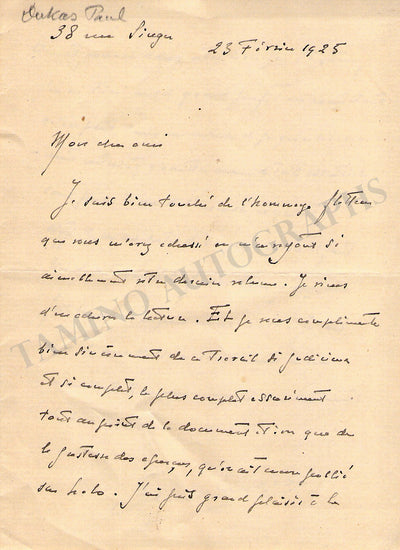 Dukas Paul
38 rue Singer
23 Février 1925
Mon cher ami
Je suis bien touché de l'hommage flatteur
que vous m'avez adressé en m'envoyant si
aimablement votre dernier volume. Je viens
d'en achever la lecture. Et je vous complimente
bien sincèrement de ce travail si judicieux
et si complet, le plus complet assurément
tant au point de vue de la documentation que de
la justesse des aperçus, qu'on ait encore publié
sur . J'ai pris grand plaisir à le
TAMINO AUTOGRAPHS